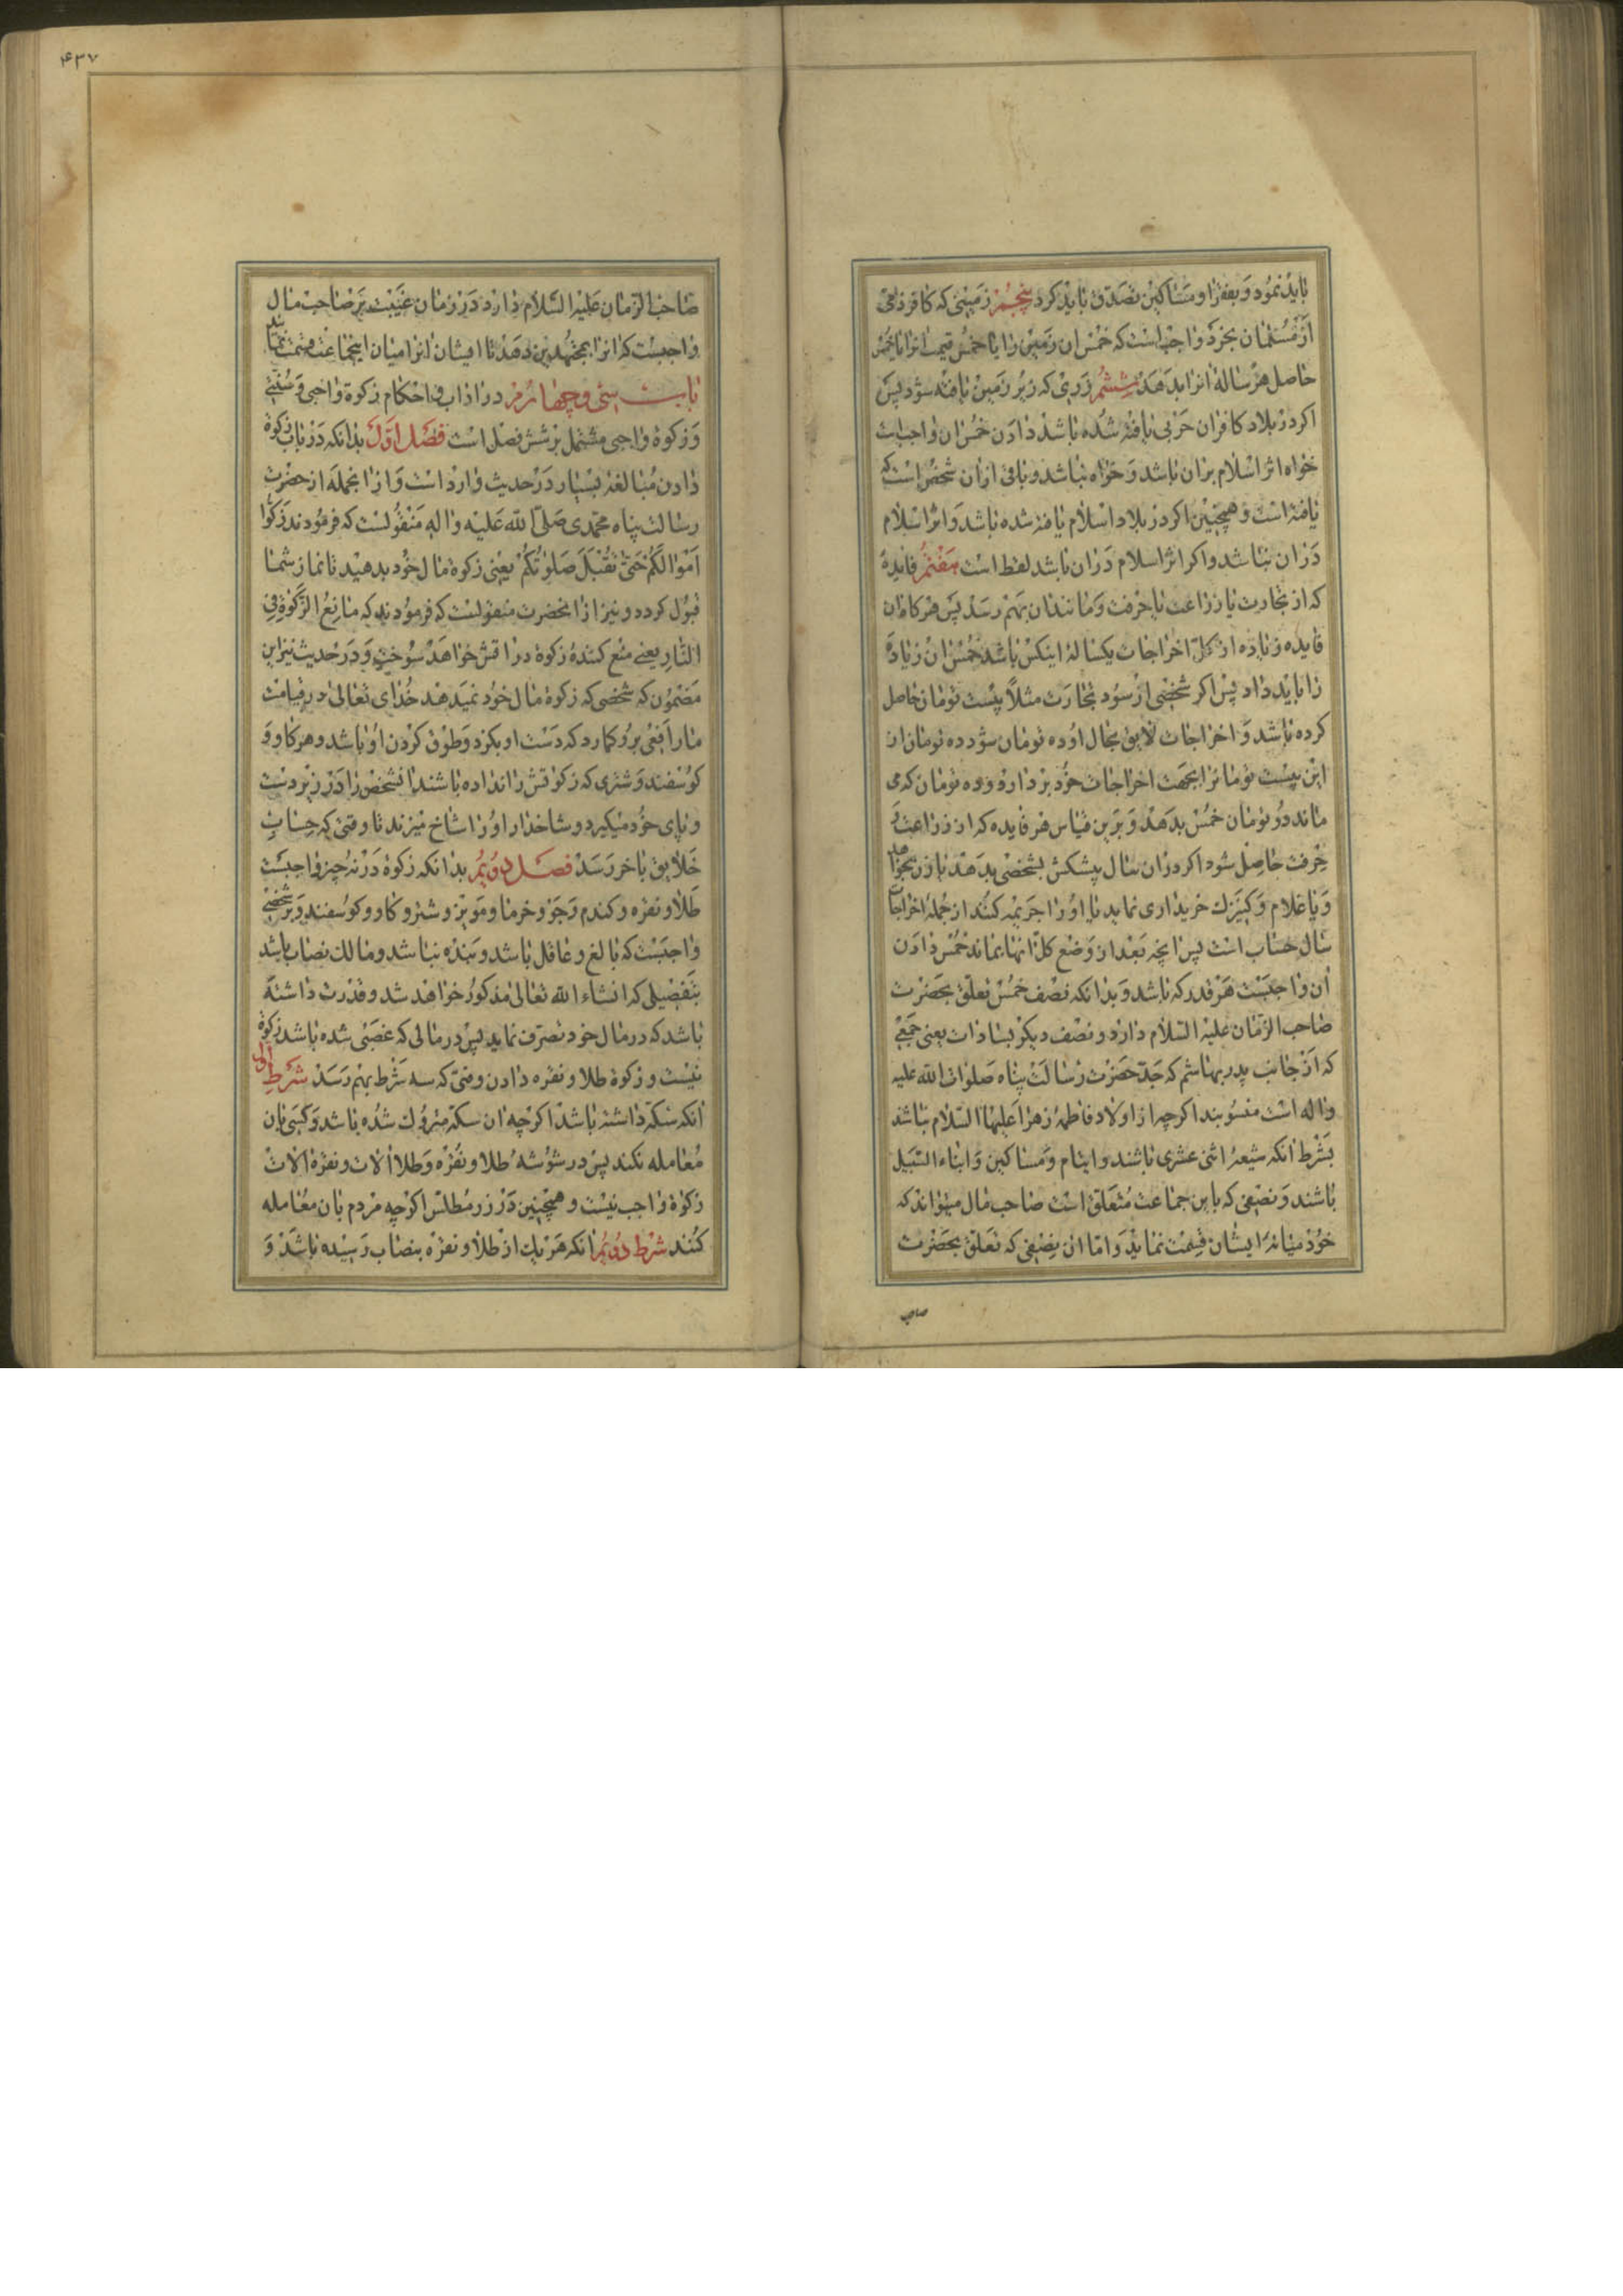 باید نمود و بفقرا و مساکین تصدق باید کرد پنجم زمینی که کافر ذمی
از مسلمان بخرد واجب است که خمس ان زمین را یا خمس قیمت انرا یا خمس
حاصل هر ساله انرا بدهد ششم زری که زیر زمین یافته شود پس
اکر در بلاد کافران حربی یافته شده باشد دادن خمس ان واجب است
خواه اثر اسلام بران باشد و خواه نباشد و باقی از ان شخص است که
یافته است و همچنین اکر در بلاد اسلام یافته شده باشد و اثر اسلام
دران نباشد و اکر اثر اسلام دران باشد لقطه است هفتم فایدهٔ
که از تجارت یا زراعت یا حرفت و مانندان بهم رسد پس هرکاه ان
فایده زیاده از کل اخراجات یکسالهٔ اینکس باشد خمس ان زیاده
را باید داد پس اکر شخصی از سود تجارت مثلاً بیست تومان حاصل
کرده باشد و اخراجات لایق بحال او ده تومان شود ده تومان از
این بیست تومانرا بجهت اخراجات خود بردارد و ده تومان که می
ماند دو تومان خمس بدهد و برین قیاس هر فایده که از زراعت و
حرفت حاصل شود اکر دران سال پیشکش بشخصی بدهد یا زن بخواهد
و یا غلام و کنیزک خریداری نماید یا او را جریمه کنند از جمله اخراجات
سال حساب است پس انچه بعد از وضع کل انها بماند خمس دادن
ان واجبست هر قدر که باشد و بدانکه نصف خمس تعلق بحضرت
صاحب الزمان علیه السلام دارد و نصف دیکر بسادات یعنی جمعی
که از جانب پدر بهاشم که جد حضرت رسالت پناه صلوات الله علیه
واله است منسوبند اکرچه از اولاد فاطمه زهرا علیها السلام نباشد
بشرط انکه شیعه اثنی عشری باشند و ایتام و مساکین و ابناء السبیل
باشند و نصفی که باین جماعت متعلق است صاحب مال میتواند که
خود میانه ایشان قسمت نماید و اما ان نصفی که تعلق بحضرت
صاحب
۴۳۷
صاحب الزمان علیه السلام دارد در زمان غیبت بر صاحب مال
واجبست که انرا بمجتهدین دهد تا ایشان انرا میان اینجماعت قسمت نمایند
باب سی و چهارم در اداب و احکام زکوة واجبی و سنتی
و زکوة واجبی مشتمل بر شش فصل است فصل اول بدانکه در باب زکوة
دادن مبالغه بسیار در حدیث وارد است و از انجمله از حضرت
رسالت پناه محمدی صلی الله علیه واله منقولست که فرمودند زکوا
اموالکم حتی تقبل صلوتکم یعنی زکوة مال خود بدهید تا نماز شما
قبول کردد و نیز از انحضرت منقولست که فرمودند که مانع الزکوة فی
النار یعنی منع کنندهٔ زکوة در اتش خواهد سوخت و در حدیث نیز این
مضمون که شخصی که زکوة مال خود نمیدهد خدای تعالی در قیامت
مار افعی برو کمارد که دست او بکزد و طوق کردن او باشد و هر کاو و
کوسفند و شتری که زکوتش را نداده باشند انشخص را در زیر دست
و پای خود میکیرد و شاخدار او را شاخ میزند تا وقتی که حساب
خلایق باخر رسد فصل دویم بدانکه زکوة در نه چیز واجبست
طلا و نقره و کندم و جو و خرما و مویز و شتر و کاو و کوسفند و بر شخصی
واجبست که بالغ و عاقل باشد و بنده نباشد و مالک نصاب باشد
بتفصیلی که انشاء الله تعالی مذکور خواهد شد و قدرت داشته
باشد که در مال خود تصرف نماید پس در مالی که غصبی شده باشد زکوة
نیست و زکوة طلا و نقره دادن وقتی که سه شرط بهم رسد شرط اول
انکه سکه داشته باشد اکرچه ان سکه متروک شده باشد و کسی بان
معامله نکند پس در شوشهٔ طلا و نقره و طلا الات و نقره الات
زکوة واجب نیست و همچنین در زر مطلس اکرچه مردم بان معامله
کنند شرط دویم انکه هر یک از طلا و نقره بنصاب رسیده باشد و